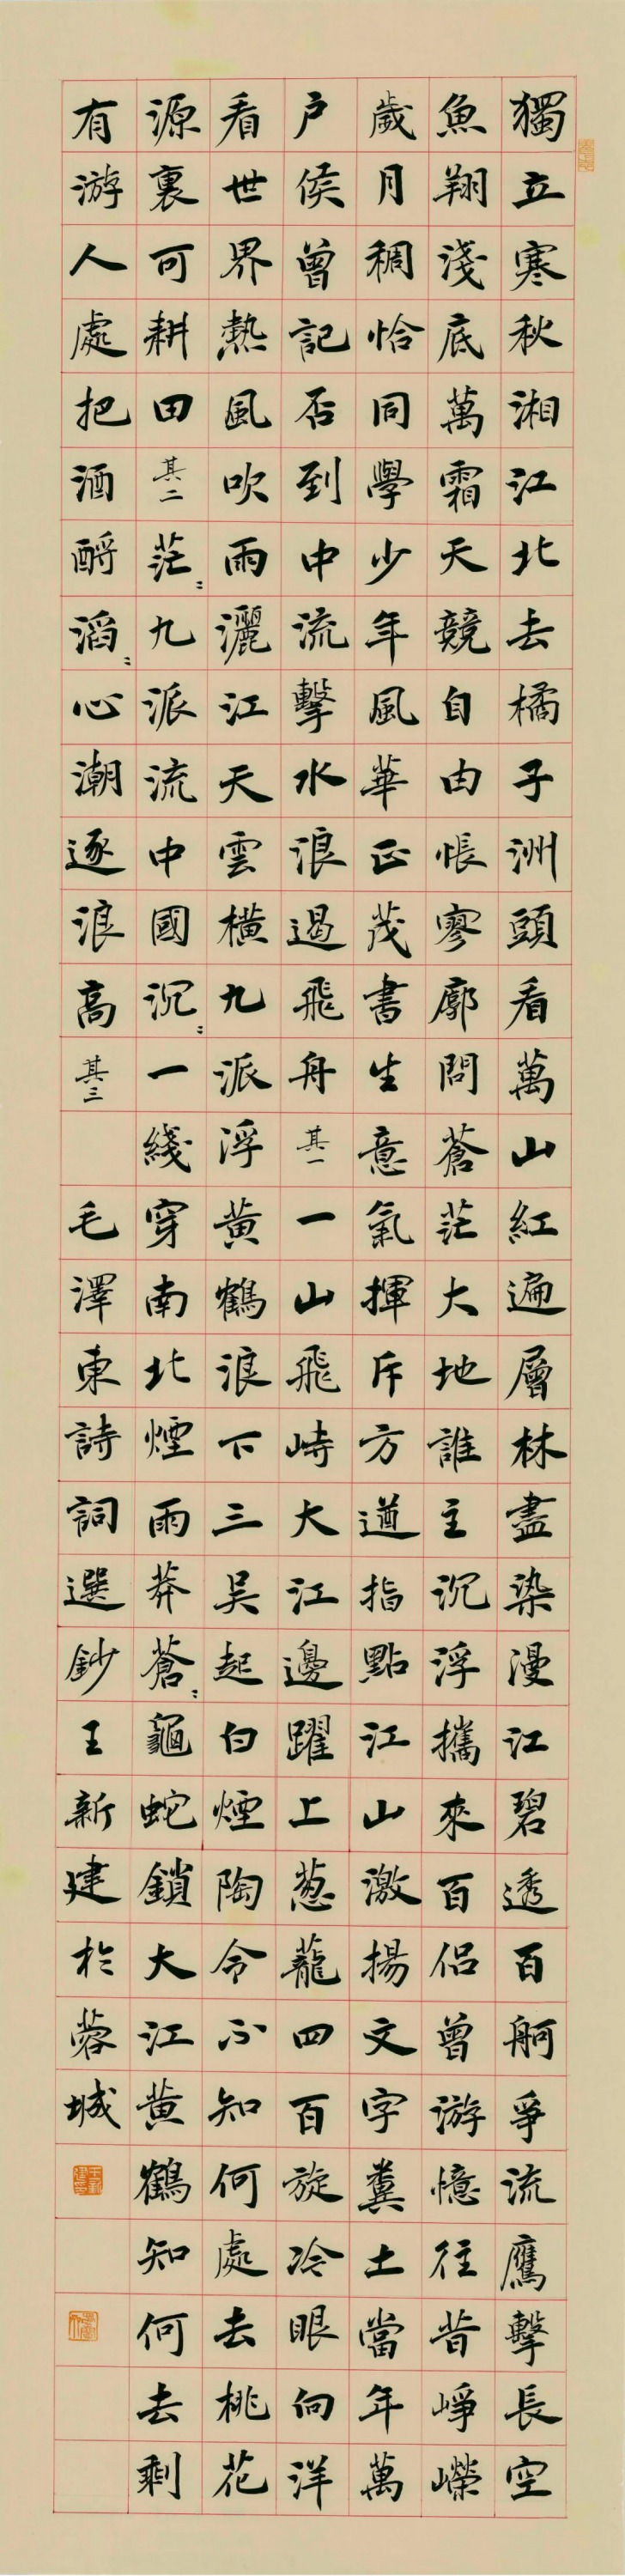 獨立寒秋湘江北去橘子洲頭看萬山紅遍層林盡染漫江碧透百舸爭流鷹擊長空
魚翔淺底萬霜天競自由悵廖廓問蒼茫大地誰主沉浮攜來百侶曾游憶往昔崢嶸
歲月稠恰同學少年風華正茂書生意氣揮斥方遒指點江山激揚文字糞土當年萬
户侯曾記否到中流擊水浪遏飛舟其一一山飛峙大江邊躍上葱蘢四百旋冷眼向洋
看世界熱風吹雨灑江天雲橫九派浮黄鶴浪下三吳起白煙陶令不知何處去桃花
源裏可耕田其二茫〻九派流中國沉〻一綫穿南北煙雨莽蒼〻龜蛇鎖大江黄鶴知何去剩
有游人處把酒酹滔〻心潮逐浪高其三 毛澤東詩詞選鈔王新建於蓉城